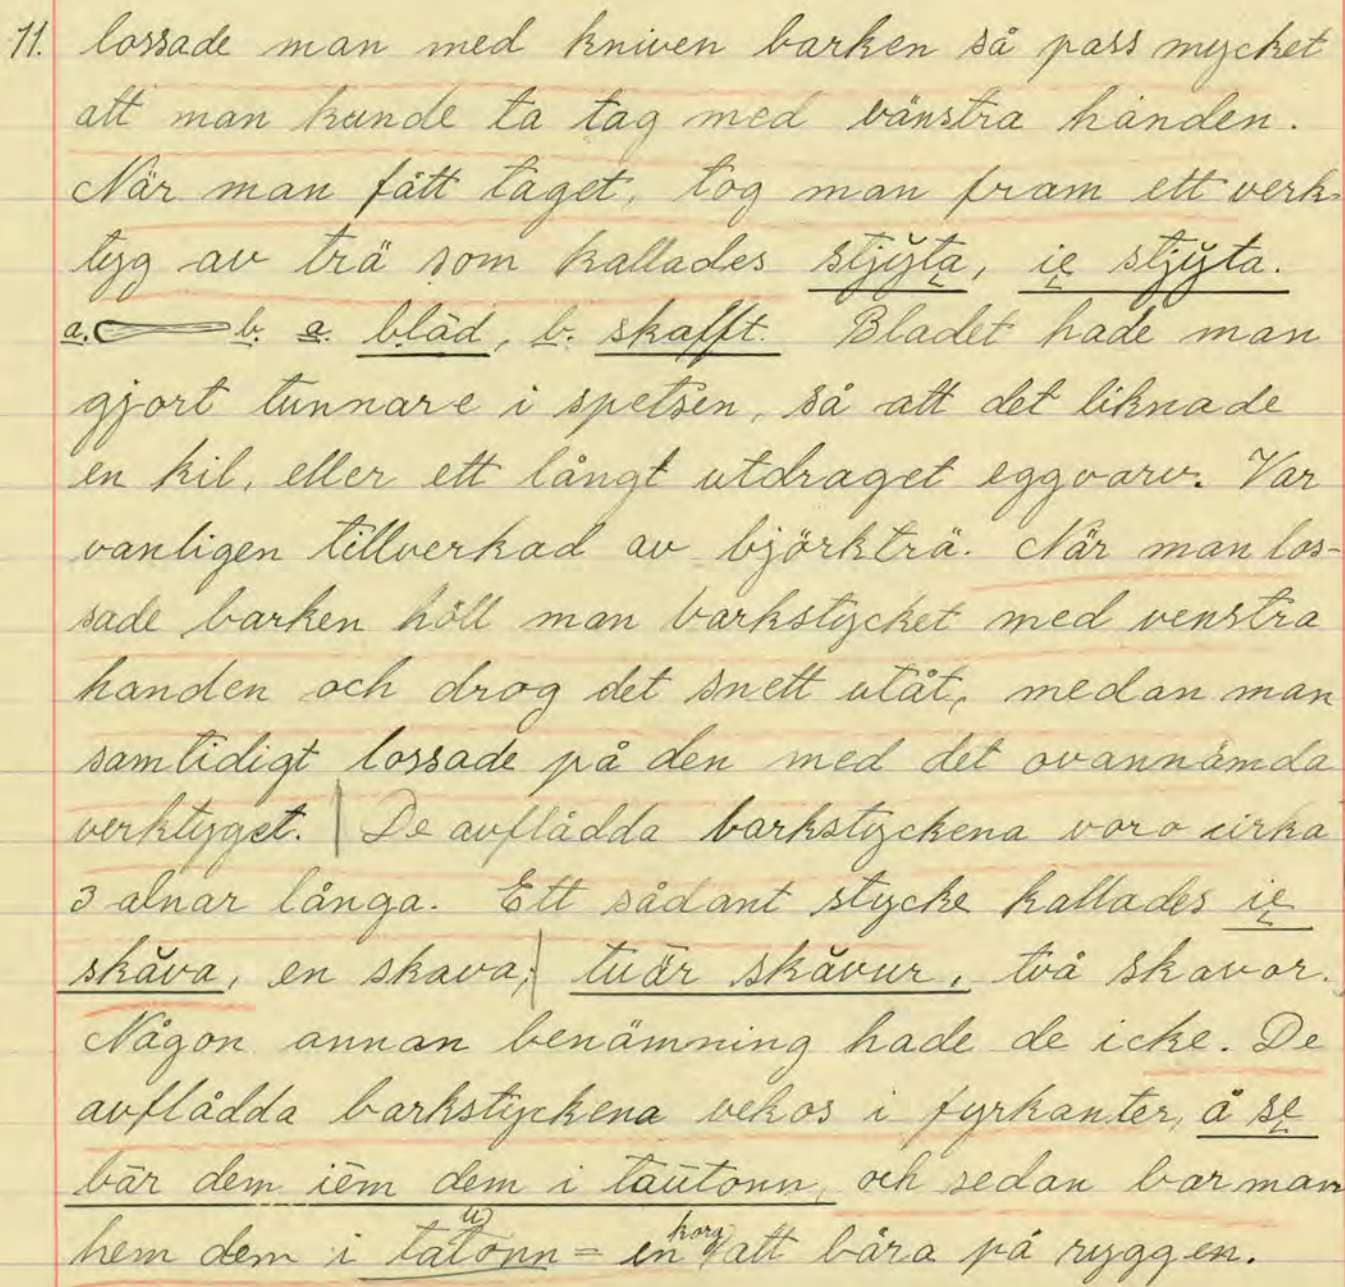 11. lossade man med kniven barken så pass mycket
att man kunde ta tag med vänstra handen.
När man fått taget, tog man fram ett verk-
tyg av trä som kallades stjy̆ta, ie stjy̆ta.
a. b. a. blad, b. skafft. Bladet hade man
gjort tunnare i spetsen, så att det liknade
en kil, eller ett långt utdraget eggvarv. Var
vanligen tillverkad av björkträ. När man los-
sade barken höll man barkstycket med venstra
handen och drog det snett utåt, medan man
samtidigt lossade på den med det ovannämda
verktyget. | De avflådda barkstyckena voro cirka
3 alnar långa. Ett sådant stycke kallades ie
skăva, en skava; | tuär skăvur, två skavor.
Någon annan benämning hade de icke. De
avflådda barkstyckena vekos i fyrkanter, å se
bär dem iēm dem i taūtonn, och sedan bar man
hem dem i tautonn = en korg att bära på ryggen.